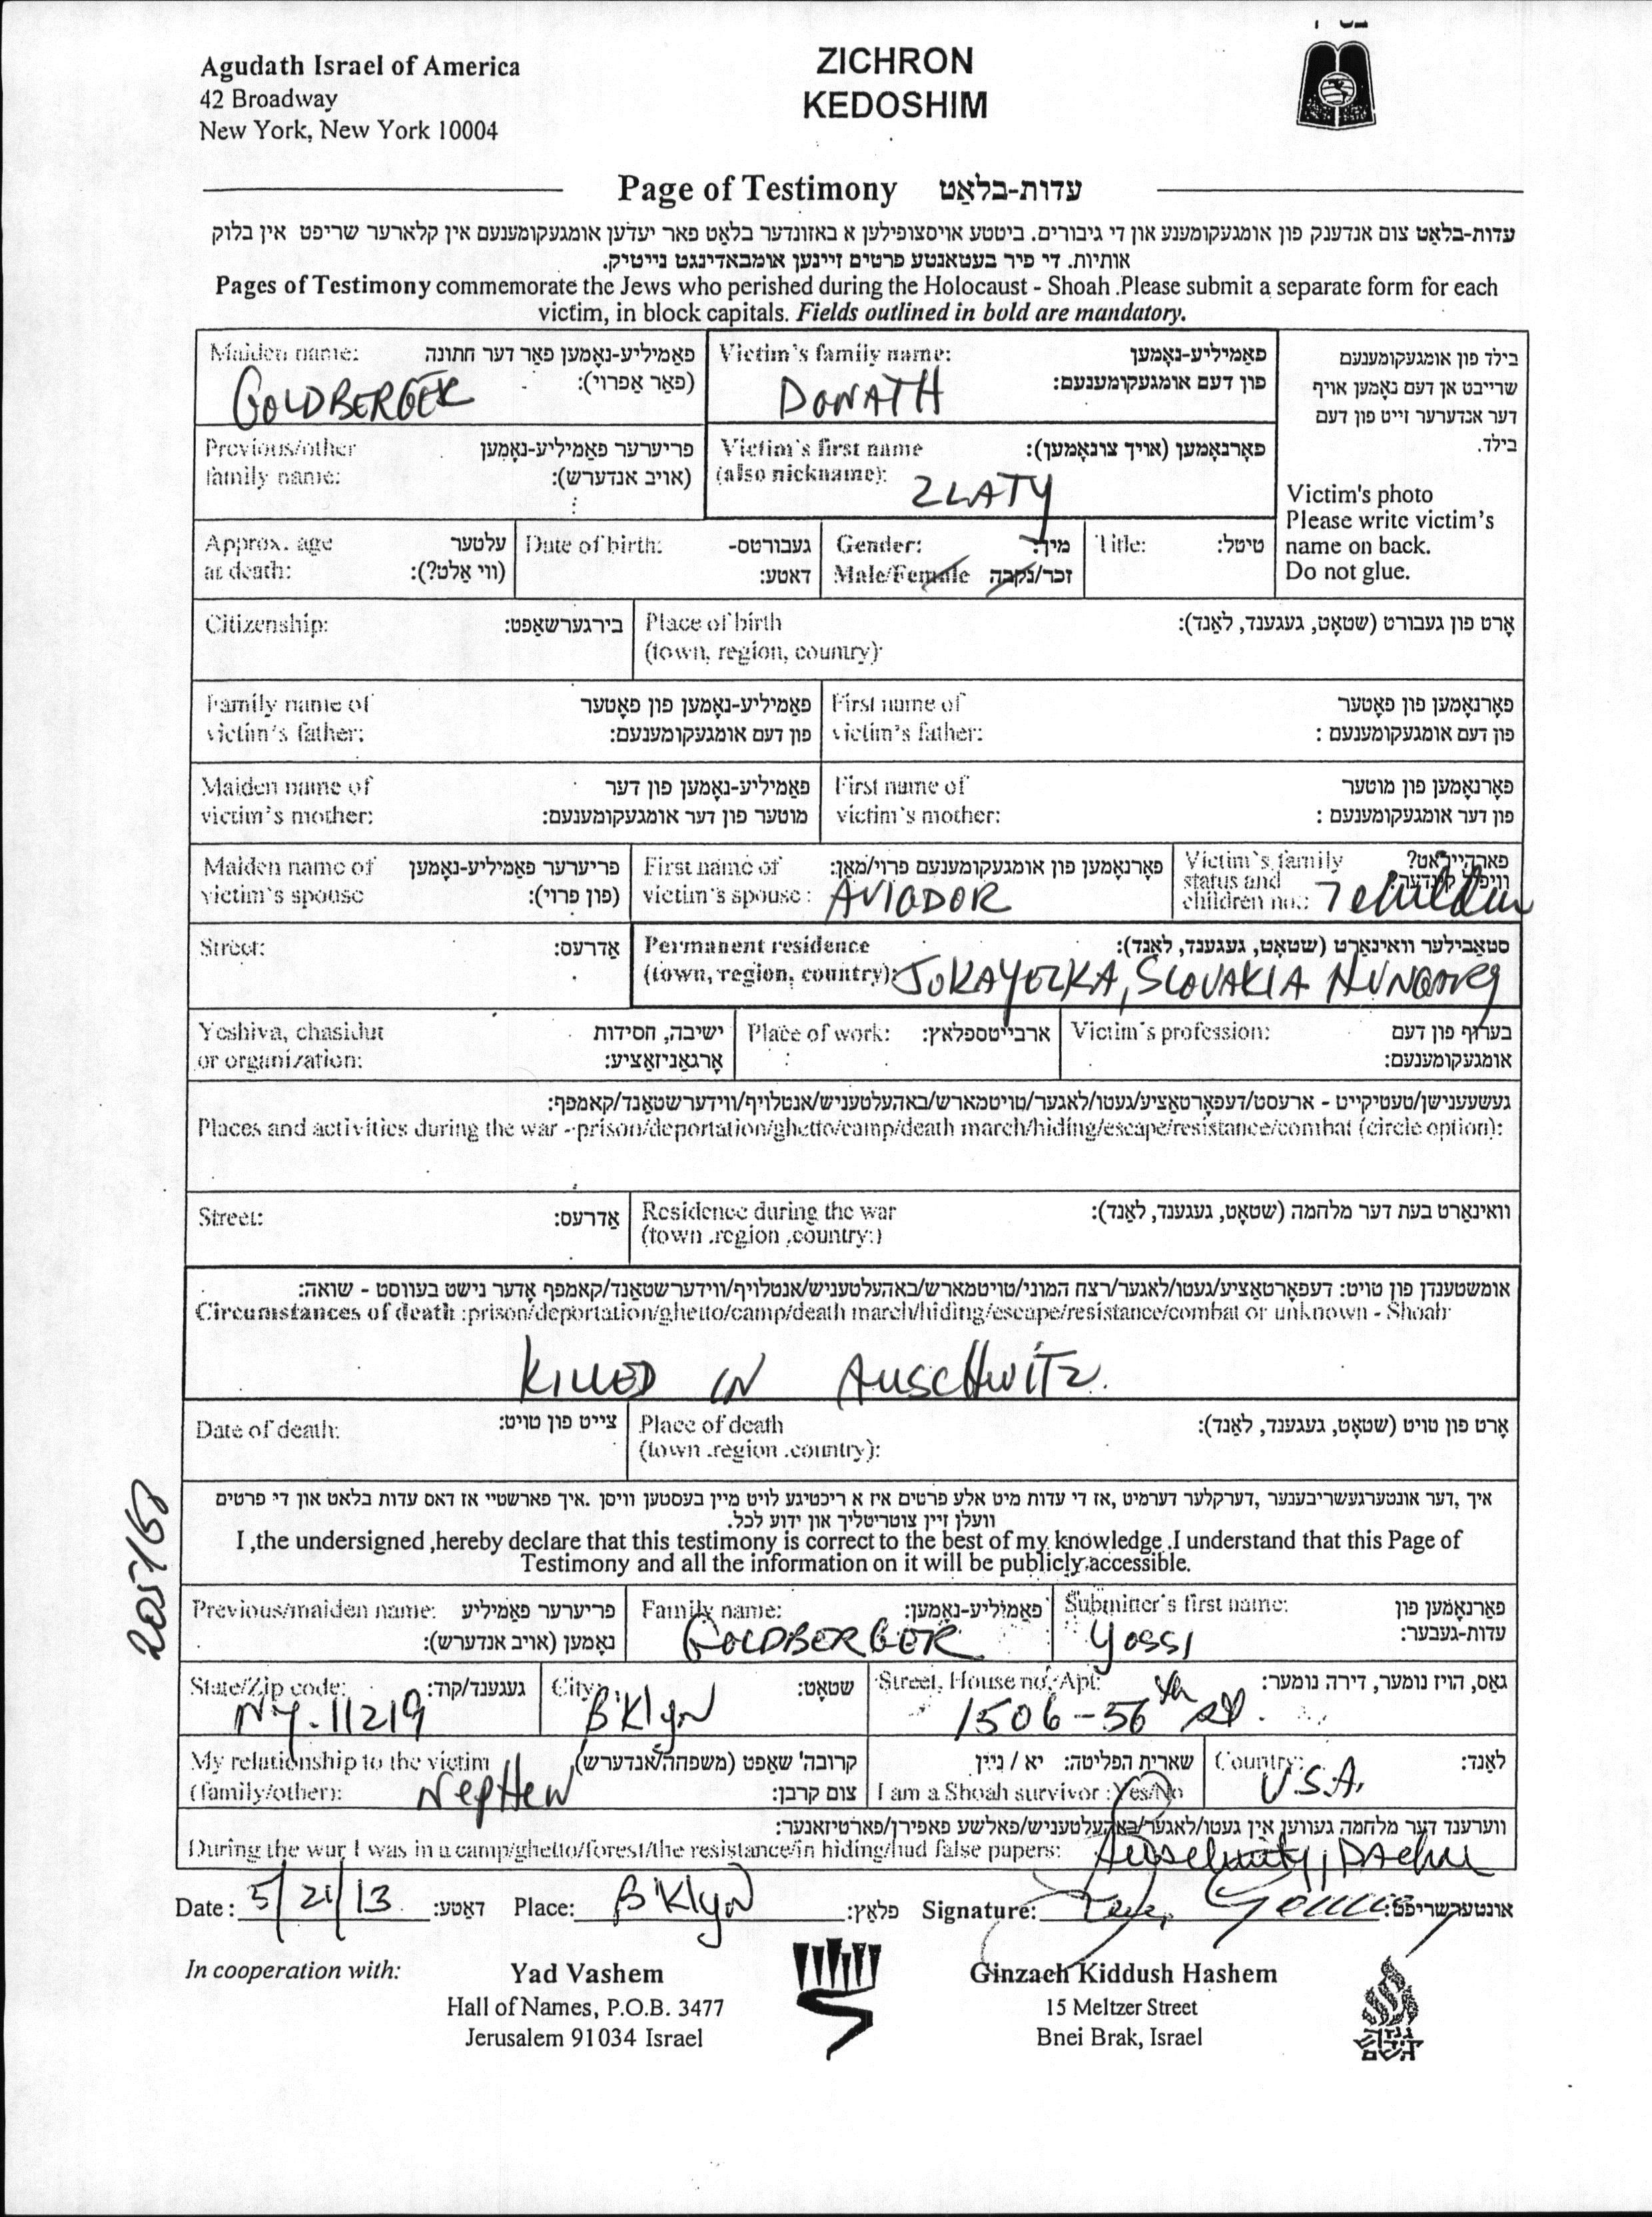 Agudath Israel of America
42 Broadway
New York, New York 10004
ZICHRON
KEDOSHIM
Page of Testimony עדות-בלאַט
עדות-בלאַט צום אנדענק פון אומגעקומענע און די גיבורים. ביטטע אויסצופילען א באזונדער בלאַט פאר יעדען אומגעקומענעם אין קלארער שריפט אין בלוק
אותיות. די פיר בעטאנטע פרטים זיינען אומבאדינגט נייטיק.
Pages of Testimony commemorate the Jews who perished during the Holocaust - Shoah .Please submit a separate form for each
victim, in block capitals. Fields outlined in bold are mandatory.
Maiden name: פאַמיליע-נאָמען פאַר דער חתונה
(פאַר אַפרוי):
GOLDBERGER
Victim's family name: פאַמיליע-נאָמען
פון דעם אומגעקומענעם:
DONATH
בילד פון אומגעקומענעם
שרייבט אן דעם נאָמען אויף
דער אנדערער זייט פון דעם
בילד.
Victim's photo
Please write victim's
name on back.
Do not glue.
Previous/other פריערער פאַמיליע-נאָמען
family name: (אויב אנדערש):
Victim's first name פאָרנאָמען (אויך צונאָמען):
(also nickname): ZLATY
Approx. age עלטער
at death: (ווי אַלט?):
Date of birth: געבורטס-
דאַטע:
Gender: מין:
Male/Female זכר/נקבה
Title: טיטל:
Citizenship: בירגערשאַפט:
Place of birth אָרט פון געבורט (שטאָט, געגענד, לאַנד):
(town, region, country):
Family name of פאַמיליע-נאָמען פון פאָטער
victim's father: פון דעם אומגעקומענעם:
First name of פאָרנאָמען פון פאָטער
victim's father: פון דעם אומגעקומענעם :
Maiden name of פאַמיליע-נאָמען פון דער
victim's mother: מוטער פון דער אומגעקומענעם:
First name of פאָרנאָמען פון מוטער
victim's mother: פון דער אומגעקומענעם :
Maiden name of פריערער פאַמיליע-נאָמען
victim's spouse (פון פרוי):
First name of פאָרנאָמען פון אומגעקומענעם פרוי/מאַן:
victim's spouse : AVIGDOR
Victim's family פארהייראַט?
status and
children no.: 7 children
Street: אַדרעס:
Permanent residence סטאַבילער וואוינאָרט (שטאָט, געגענד, לאַנד):
(town, region, country): SLOVAKIA HUNGARY
Yeshiva, chasidut ישיבה, חסידות
or organization: אָרגאַניזאַציע:
Place of work: ארבייטספלאַץ:
Victim's profession: בערוף פון דעם
אומגעקומענעם:
געשעענישן/טעטיקייט - ארעסט/דעפּאָרטאַציע/געטו/לאַגער/טויטמארש/באַהעלטעניש/אנטלויף/ווידערשטאַנד/קאמפף:
Places and activities during the war - prison/deportation/ghetto/camp/death march/hiding/escape/resistance/combat (circle option):
Street: אַדרעס:
Residence during the war וואוינאָרט בעת דער מלחמה (שטאָט, געגענד, לאַנד):
(town .region .country:)
אומשטענדן פון טויט: דעפּאָרטאַציע/געטו/לאַגער/רצח המוני/טויטמארש/באַהעלטעניש/אנטלויף/ווידערשטאַנד/קאמפף אָדער נישט בעוווסט - שואה:
Circumstances of death :prison/deportation/ghetto/camp/death march/hiding/escape/resistance/combat or unknown - Shoah:
KILLED IN AUSCHWITZ.
Date of death: צייט פון טויט:
Place of death אָרט פון טויט (שטאָט, געגענד, לאַנד):
(town .region .country):
איך ,דער אונטערגעשריבענער ,דערקלער דערמיט ,אז די עדות מיט אלע פרטים איז א ריכטיגע לויט מיין בעסטען וויסן .איך פארשטיי אז דאס עדות בלאט און די פרטים
וועלן זיין צוטריטליך און ידוע לכל.
I ,the undersigned ,hereby declare that this testimony is correct to the best of my knowledge .I understand that this Page of
Testimony and all the information on it will be publicly accessible.
205/68
Previous/maiden name: פריערער פאַמיליע
נאָמען (אויב אנדערש):
Family name: פאַמיליע-נאָמען:
GOLDBERGER
Submitter's first name: פאָרנאָמען פון
עדות-געבער:
YOSSI
State/Zip code: געגענד/קוד:
NY. 11219
City: שטאָט:
B'Klyn
Street, House no, Apt: גאַס, הויז נומער, דירה נומער:
1506 - 56th St.
My relationship to the victim קרובה' שאַפט (משפחה/אנדערש)
(family/other): צום קרבן:
Nephew
שארית הפליטה: יא / ניין
I am a Shoah survivor :Yes/No
Country: לאַנד:
U.S.A.
ווערענד דער מלחמה געווען אין געטו/לאַגער/באַהעלטעניש/פאלשע פאפירן/פארטיזאנער:
During the war I was in a camp/ghetto/forest/the resistance/in hiding/had false papers: Auschwitz, Dachau
Date: 5/21/13 דאַטע: Place: B'Klyn פלאַץ: Signature: אונטערשריפט:
In cooperation with:
Yad Vashem
Hall of Names, P.O.B. 3477
Jerusalem 91034 Israel
Ginzach Kiddush Hashem
15 Meltzer Street
Bnei Brak, Israel
גנזך
קידוש
השם